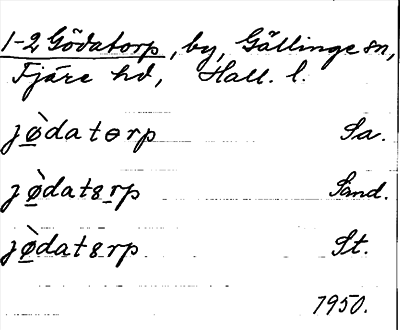 1-2 Gödatorp, by, Gällinge sn,
Fjäre hd, Hall. l.
jø̀datɵrp Sa.
jø̀datꞛrp Sand.
jø̀datꞛrp St.
1950.